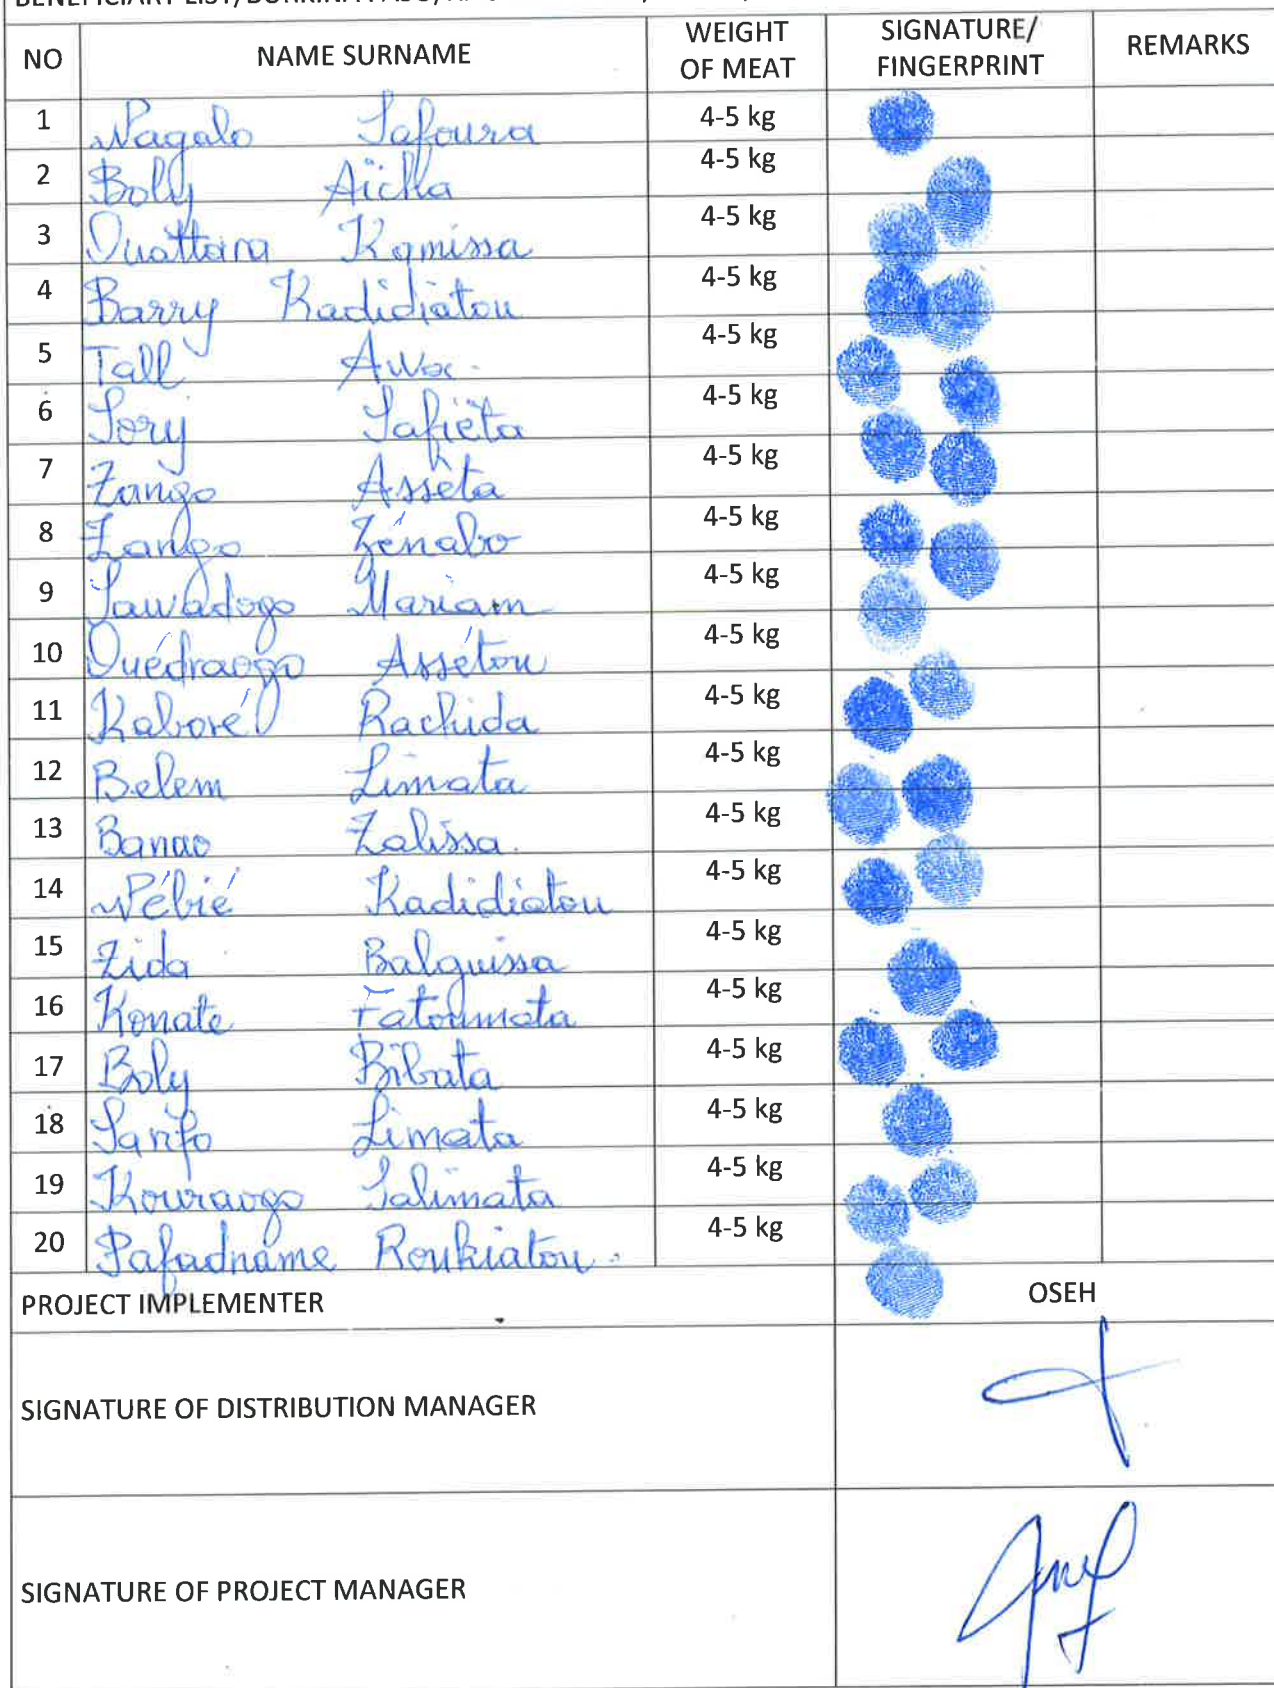 BENEFICIARY LIST/BURKINA FASO/
NO NAME SURNAME WEIGHT OF MEAT SIGNATURE/ FINGERPRINT REMARKS
1 Nagalo Safoura 4-5 kg
2 Boly Aïcha 4-5 kg
3 Ouattara Kamissa 4-5 kg
4 Barry Kadidiatou 4-5 kg
5 Tall Awa. 4-5 kg
6 Sory Safiéta 4-5 kg
7 Zango Asséta 4-5 kg
8 Zango Zénabo 4-5 kg
9 Sawadogo Mariam 4-5 kg
10 Ouédraogo Assétou 4-5 kg
11 Kaboré Rachida 4-5 kg
12 Belem Limata 4-5 kg
13 Banao Zalissa. 4-5 kg
14 Nébié Kadidiatou 4-5 kg
15 Zida Balguissa 4-5 kg
16 Konate Fatoumata 4-5 kg
17 Boly Bibata 4-5 kg
18 Sanfo Limata 4-5 kg
19 Kouraogo Salimata 4-5 kg
20 Pafadname Roukiatou. 4-5 kg
PROJECT IMPLEMENTER OSEH
SIGNATURE OF DISTRIBUTION MANAGER
SIGNATURE OF PROJECT MANAGER